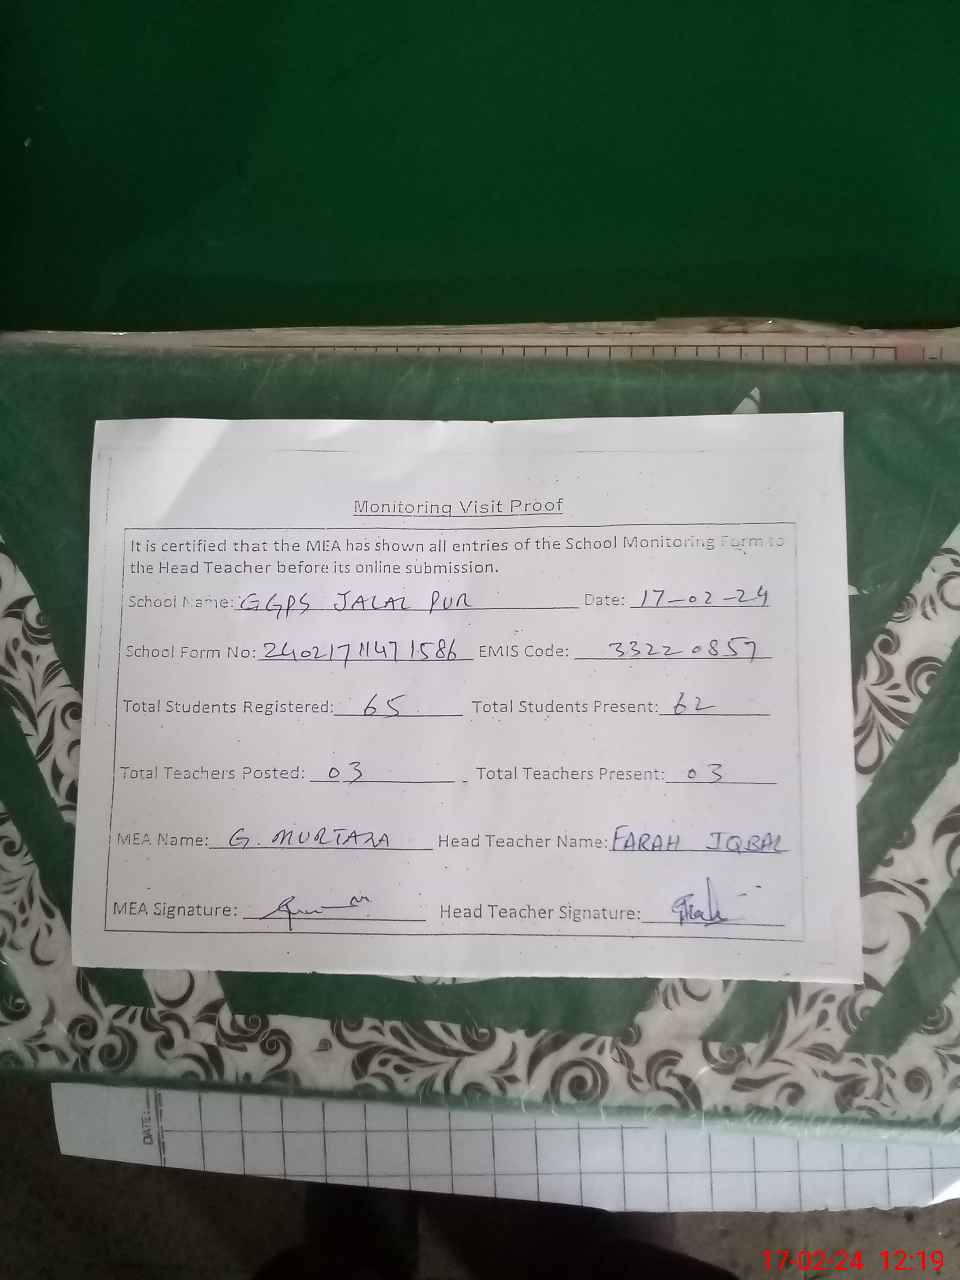 Monitoring Visit Proof
It is certified that the MEA has shown all entries of the School Monitoring Form to
the Head Teacher before its online submission.
School Name: GGPS JALAL PUR Date: 17-02-24
School Form No: 2402171147 1586 EMIS Code: 33220857
Total Students Registered: 65 Total Students Present: 62
Total Teachers Posted: 03 Total Teachers Present: 03
MEA Name: G. MURTAZA Head Teacher Name: FARAH IQBAL
MEA Signature: Head Teacher Signature:
DATE:
17-02-24 12:19